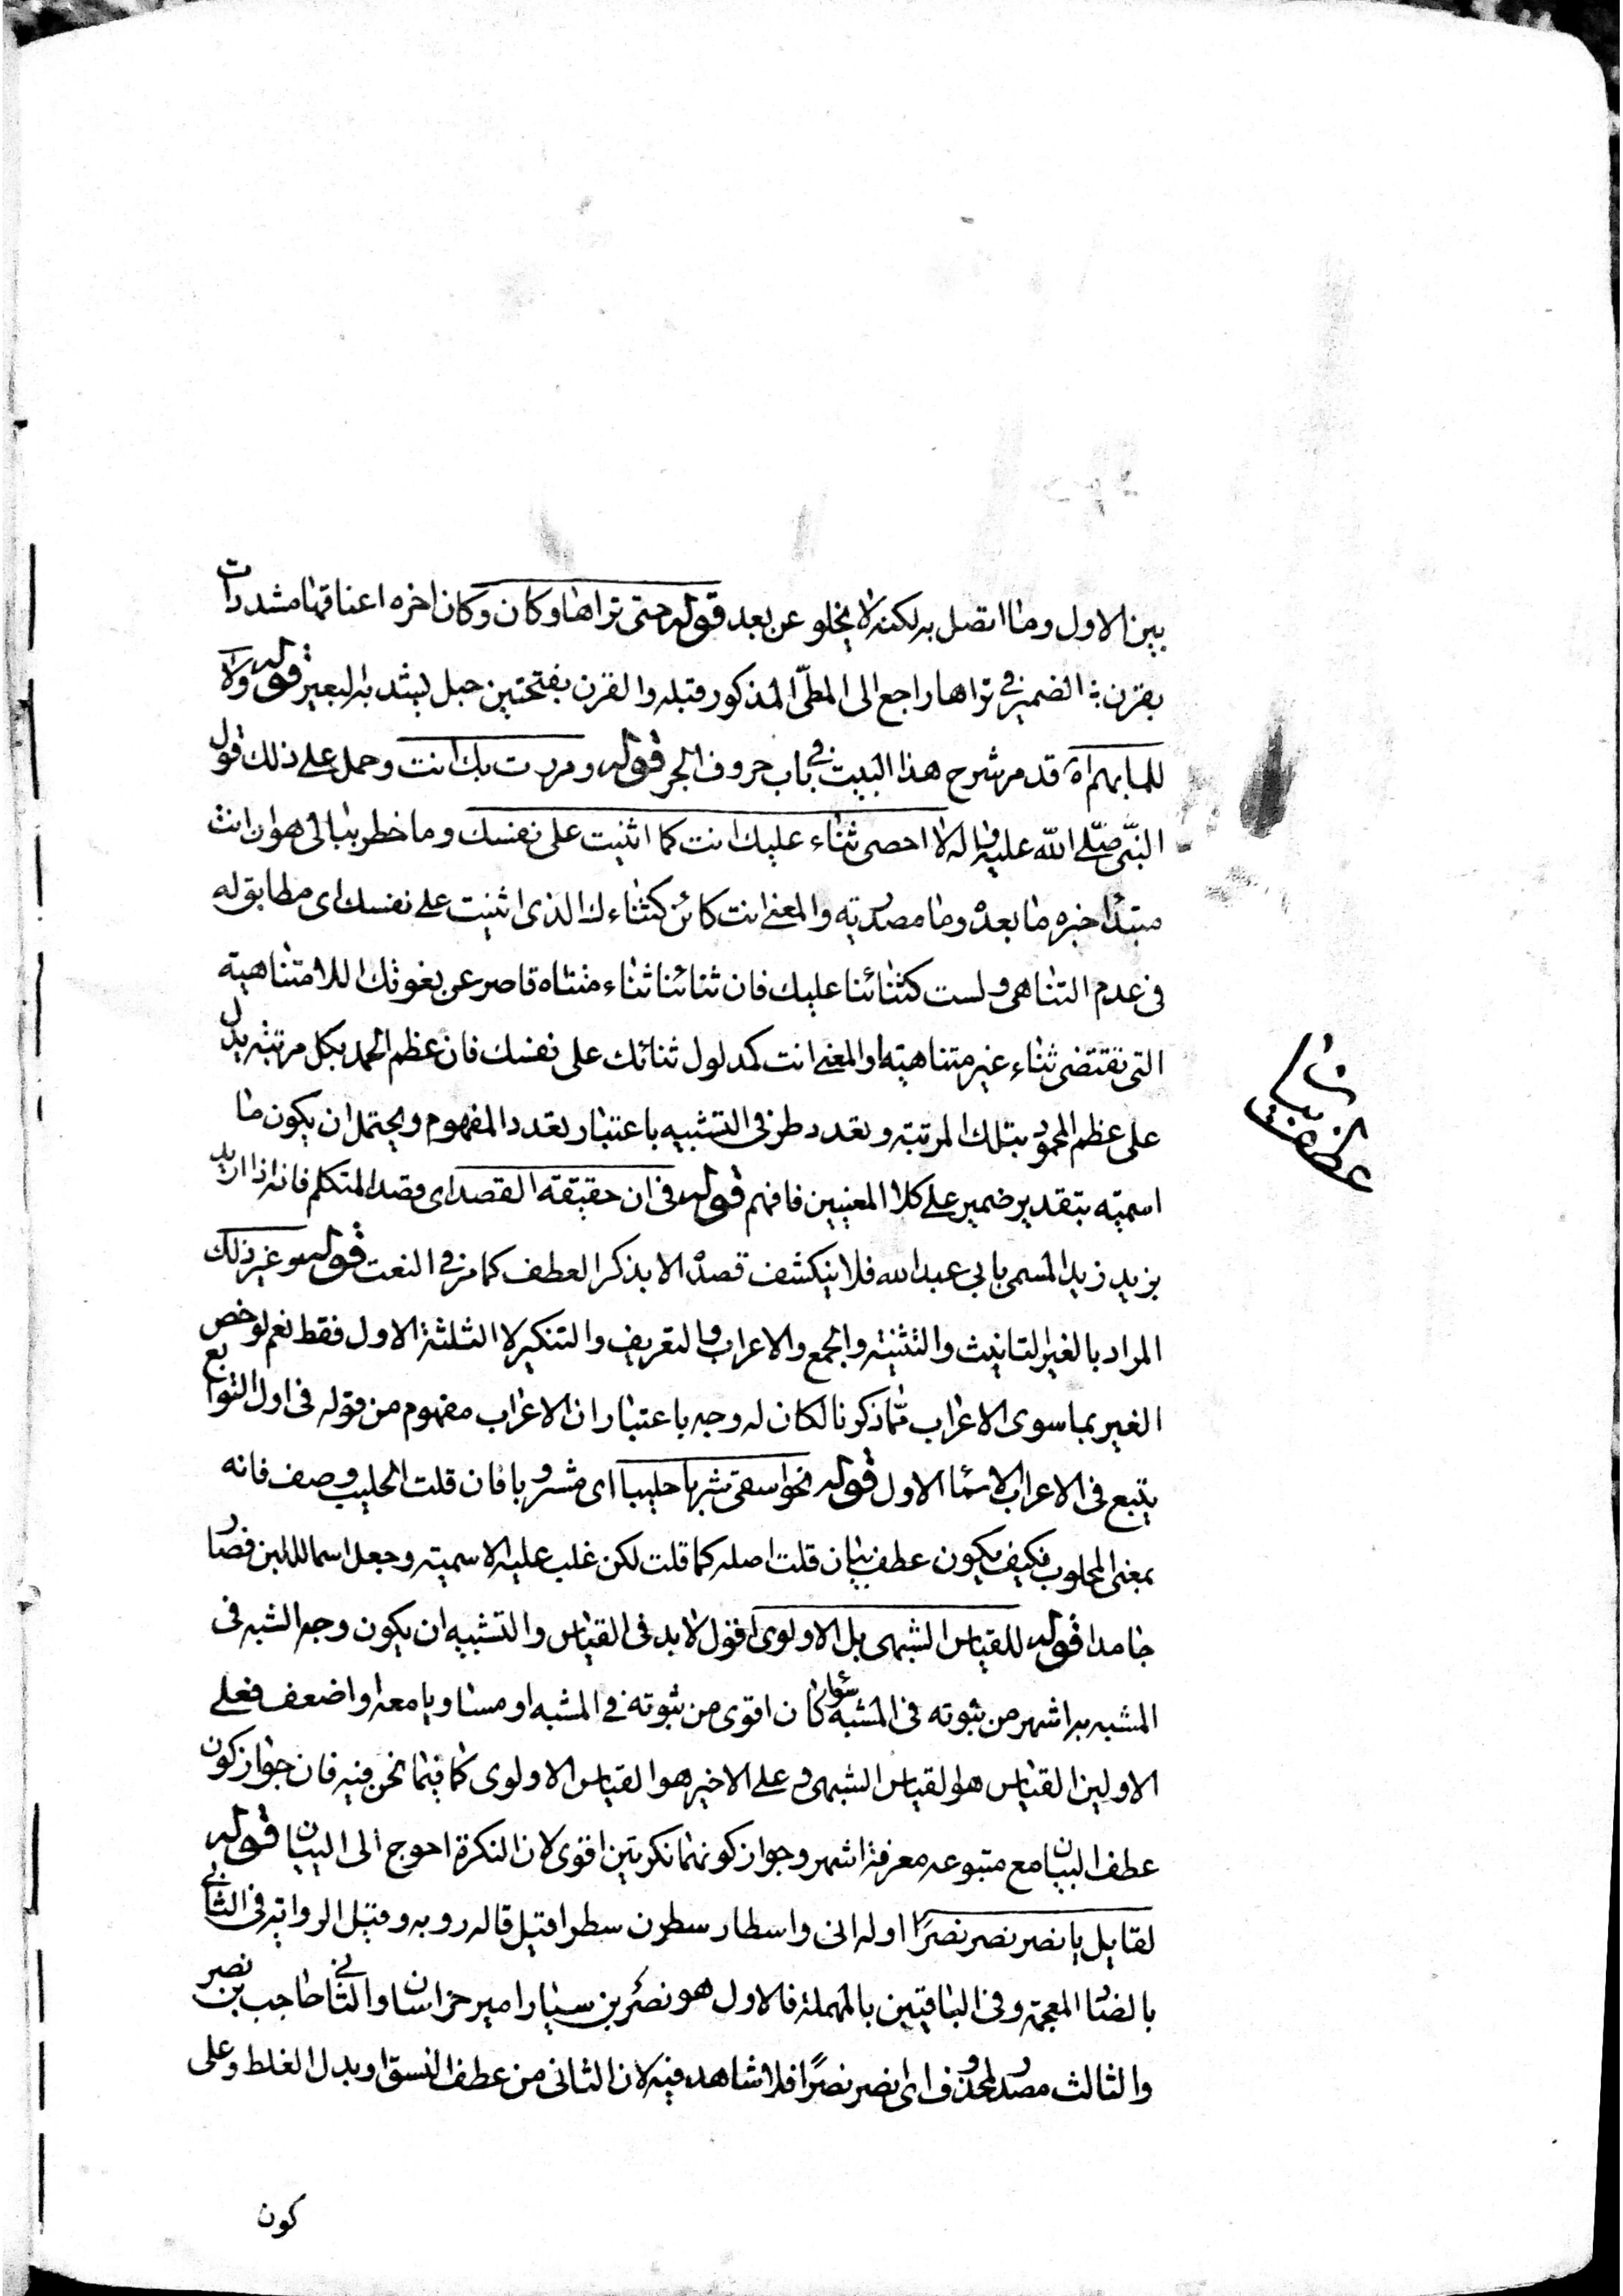 بين الاول وما اتصل به لكنه لا يخلو عن بعد قوله حتى تراها وكان وكان اخره اعناقها مشددات
بقرن ؛ الضمير في تراها راجع الى المطىّ المذكور قبله والقرن بفتحتين حبل يشد به البعير قوله ولا
للما بهم اه قد مر شرح هذا البيت في باب حروف الجر قوله ومررت بك انت وحمل على ذلك قول
النبّى صلّى اللّه عليه واله لا احصى ثناء عليك انت كما اثنيت على نفسك وما خطر ببالى هو ان انت
مبتدا خبره ما بعده وما مصدريه والمعنى انت كائن كثناءك الذى اثنيت على نفسك اى مطابق له
فى عدم التناهى ولست كثنائنا عليك فان ثنائنا ثناء متناه قاصر عن بغوتك اللامتناهية
التى تقتضى ثناء غير متناهية او المعنى انت كمدلول ثنائك على نفسك فان عظم الحمد بكل مرتبة يدل
على عظم المحمود بتلك المرتبة وتعدد طرفى التشبيه باعتبار تعدد المفهوم ويحتمل ان يكون ما
اسمية بتقدير ضمير على كلا المعنيين فافهم قوله فى ان حقيقة القصد اى قصد المتكلم فانه اذا اريد
بزيد زيد المسمى بابى عبد الله فلا ينكشف قصده الا بذكر العطف كما مر فى النعت قوله وغير ذلك
المراد بالغير التانيث والتثنية والجمع والاعراب والتعريف والتنكير لا الثلثة الاول فقط نعم لو خص
الغير بما سوى الاعراب مما ذكرنا لكان له وجه باعتبار ان الاعراب مفهوم من قوله فى اول التوابع
يتبع فى الاعراب الاسما الاول قوله نحو اسقى شربا حليبا اى مشروبا فان قلت الحليب وصف فانه
بمعنى المحلوب فكيف يكون عطف بيان قلت اصله كما قلت لكن غلب عليه الاسمية وجعل اسما للبن فصار
جامدا قوله للقياس الشبهى بل الاولوى اقول لا بد فى القياس والتشبيه ان يكون وجه الشبه فى
المشبه به اشهر من ثبوته فى المشبه سواء كان اقوى من ثبوته فى المشبه او مساويا معه او اضعف فعلى
الاولين القياس هو القياس الشبهى وعلى الاخير هو القياس الاولوى كما فيما نحن فيه فان جواز كون
عطف البيان مع متبوعه معرفة اشهر وجواز كونهما نكرتين اقوى لان النكرة احوج الى البيان قوله
لقايل يا نصر نصر نصرًا اوله انى واسطار سطرن سطرا قيل قاله روبه وقيل الرواية فى الثانى
بالضاد المعجمة وفى الباقيتين بالمهملة فالاول هو نصر بن سيار امير خراسان والثانى حاجب بن نصر
والثالث مصدر لمحذوف اى نصر نصرًا فلا شاهد فيه لان الثانى من عطف النسق او بدل الغلط وعلى
عطف بيان
كون